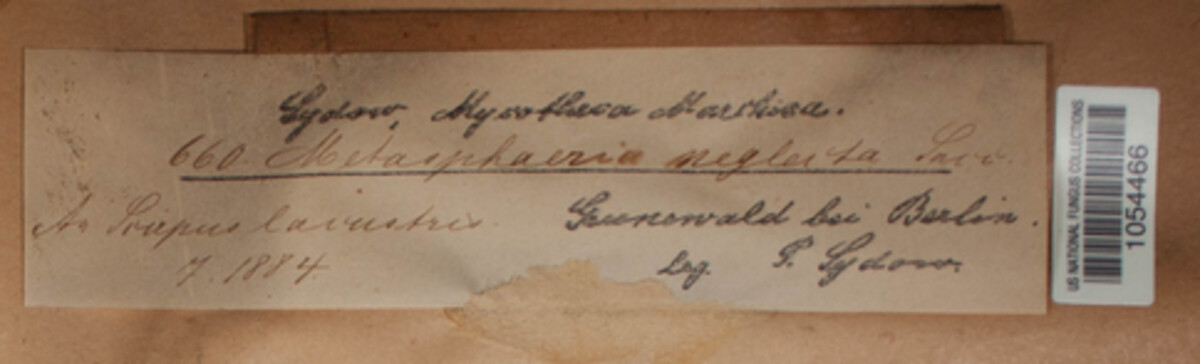 Sydow, Mycotheca Marchica.
660 Metasphaeria neglecta Sacc.
An Scirpus lacustris.
7. 1884
Grunewald bei Berlin.
Leg. P. Sydow.
US NATIONAL FUNGUS COLLECTIONS
1054466